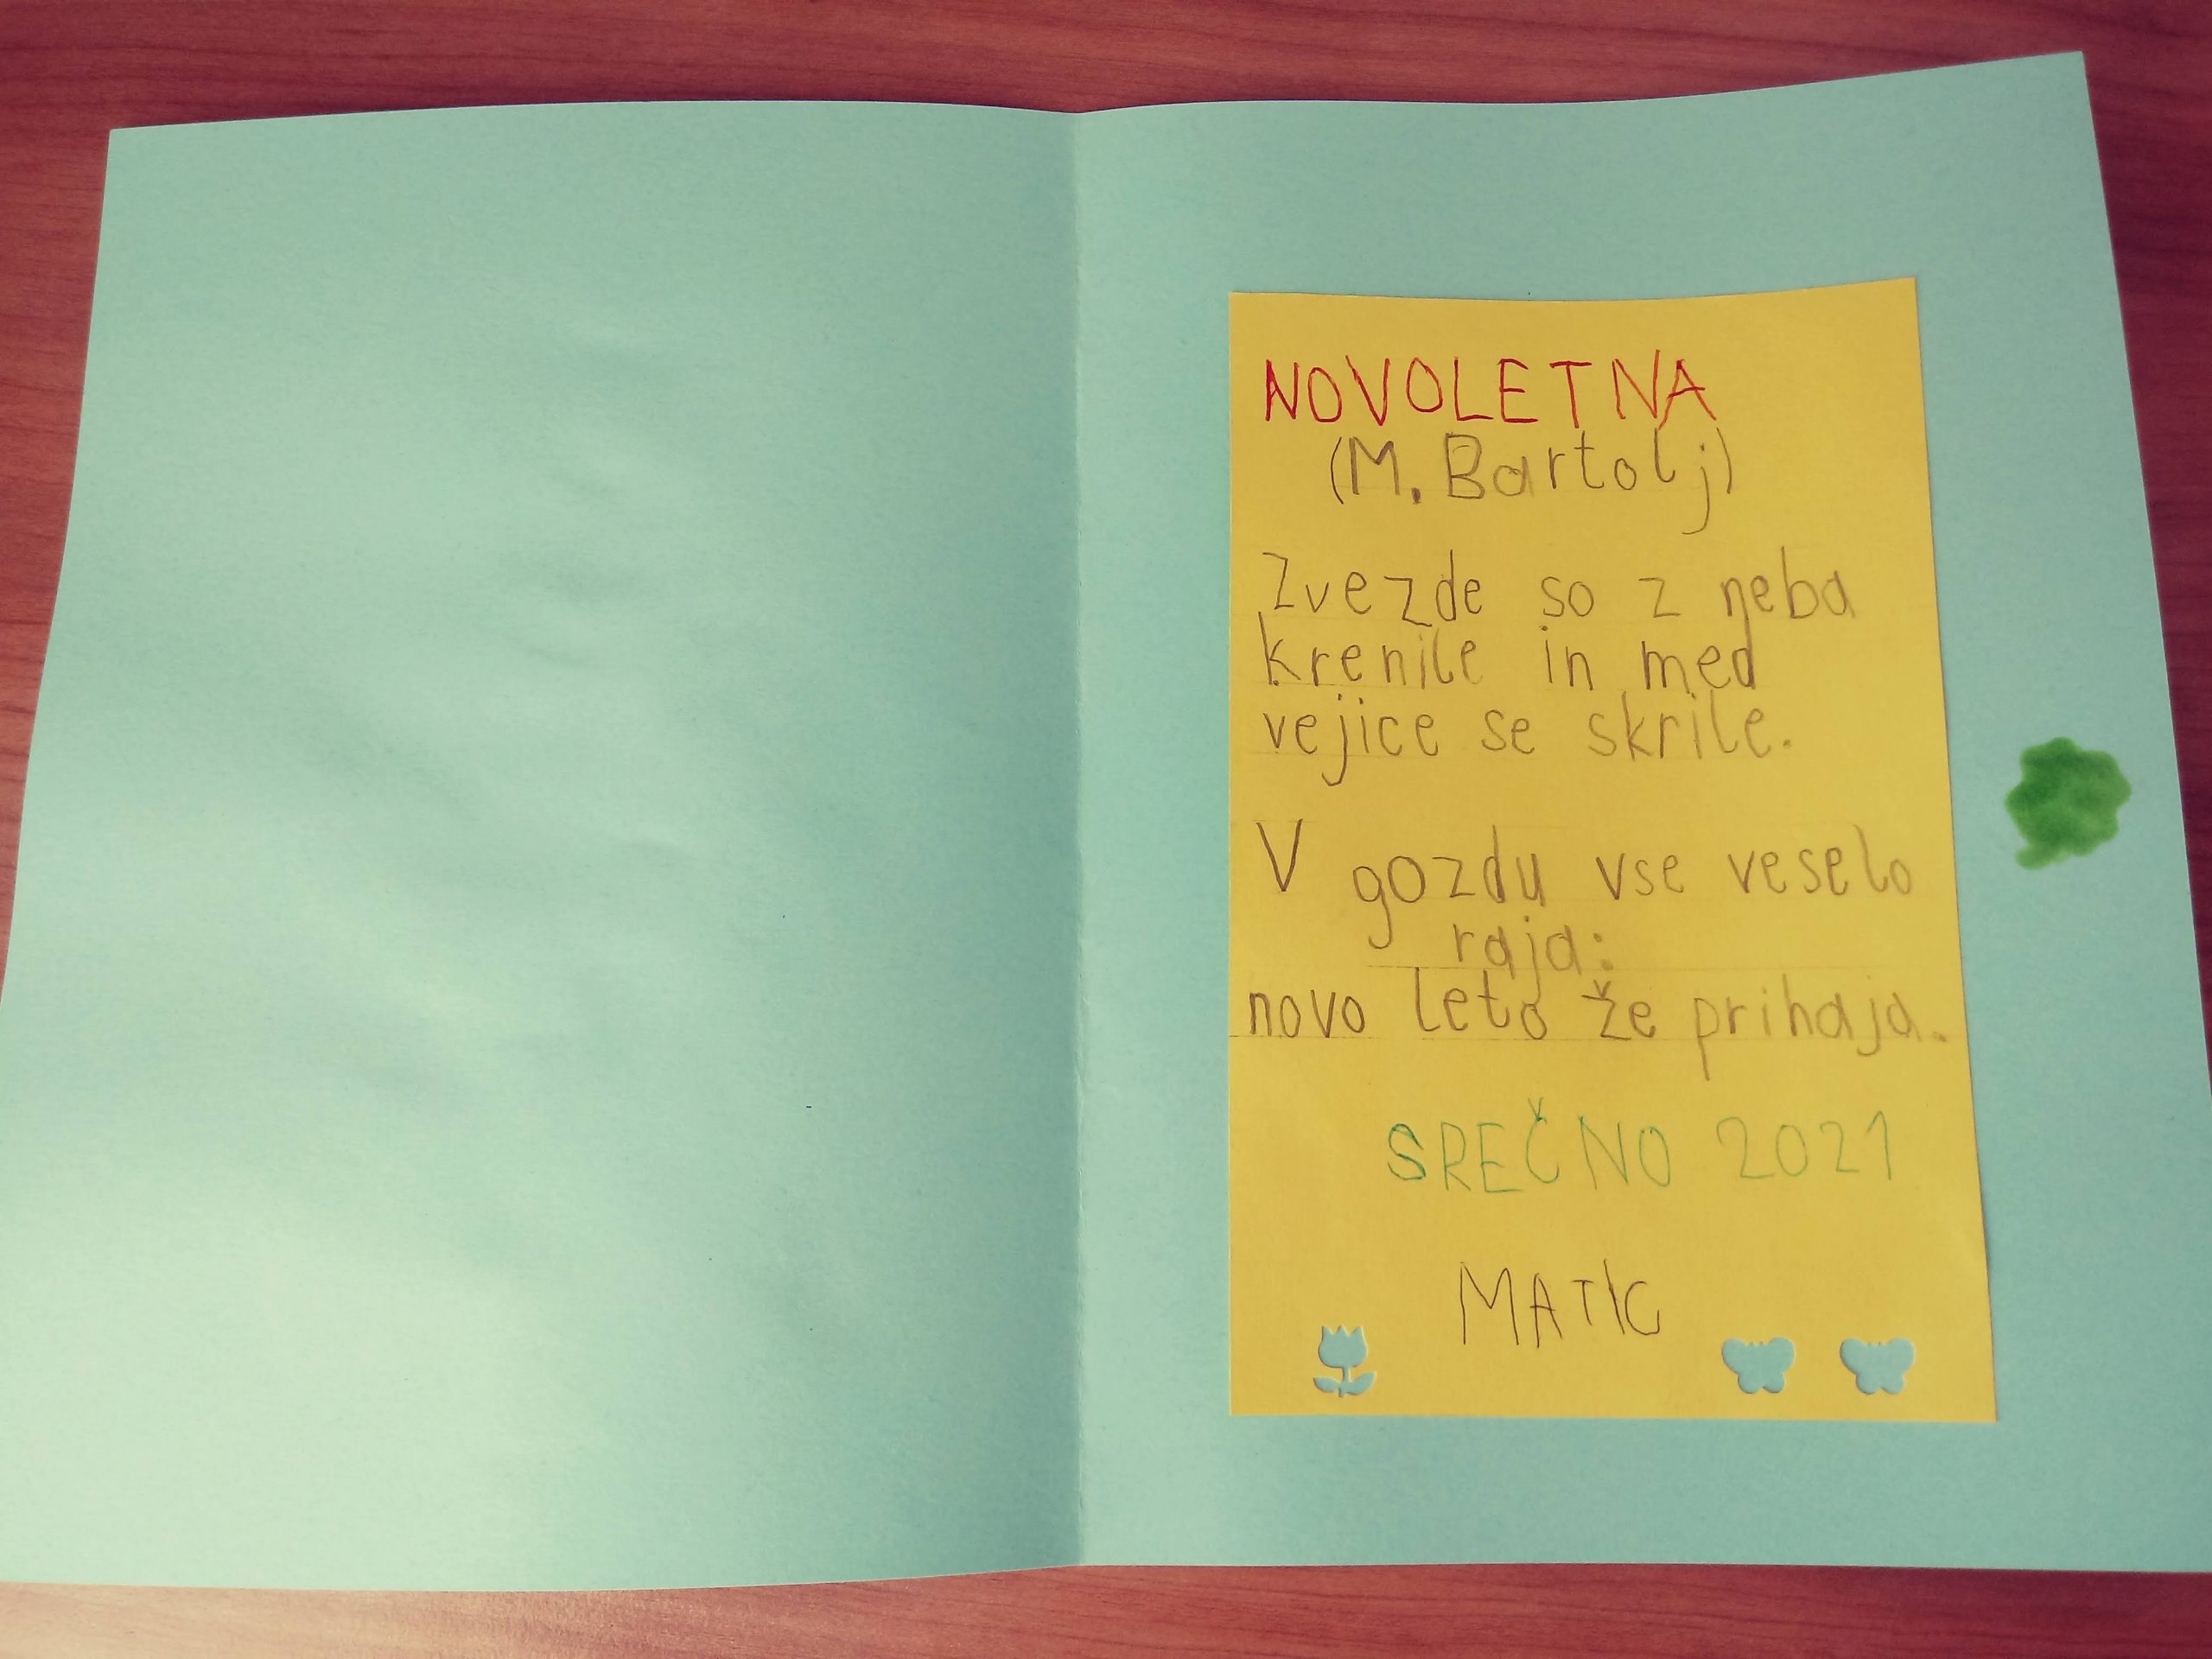 NOVOLETNA
(M. Bartolj)
Zvezde so z neba
krenile in med
vejice se skrile.
V gozdu vse veselo
raja:
novo leto že prihaja.
SREČNO 2021
MATIC